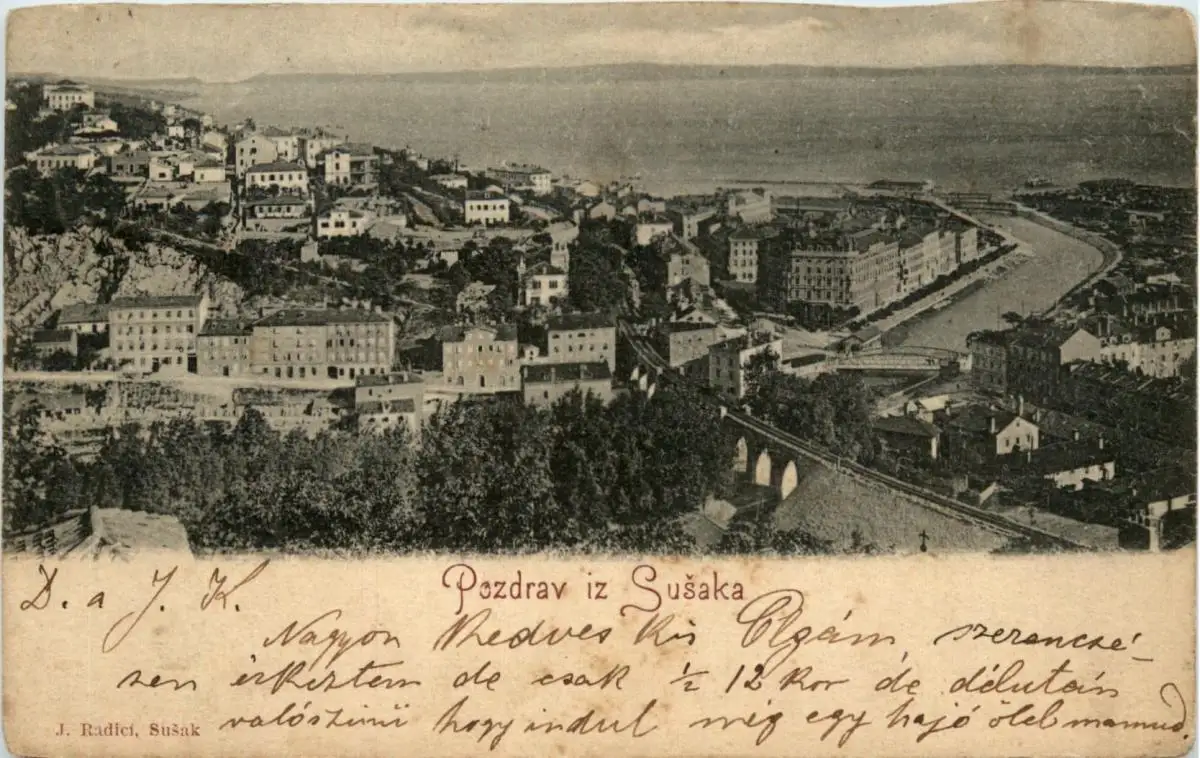 Pozdrav iz Sušaka
D. a J. K.
Nagyon kedves kis Olgám, szerencsé-
sen érkeztem de csak ½ 12 kor de délután
valószinü hogy indul még egy hajó ölel mamud.
J. Radici, Sušak